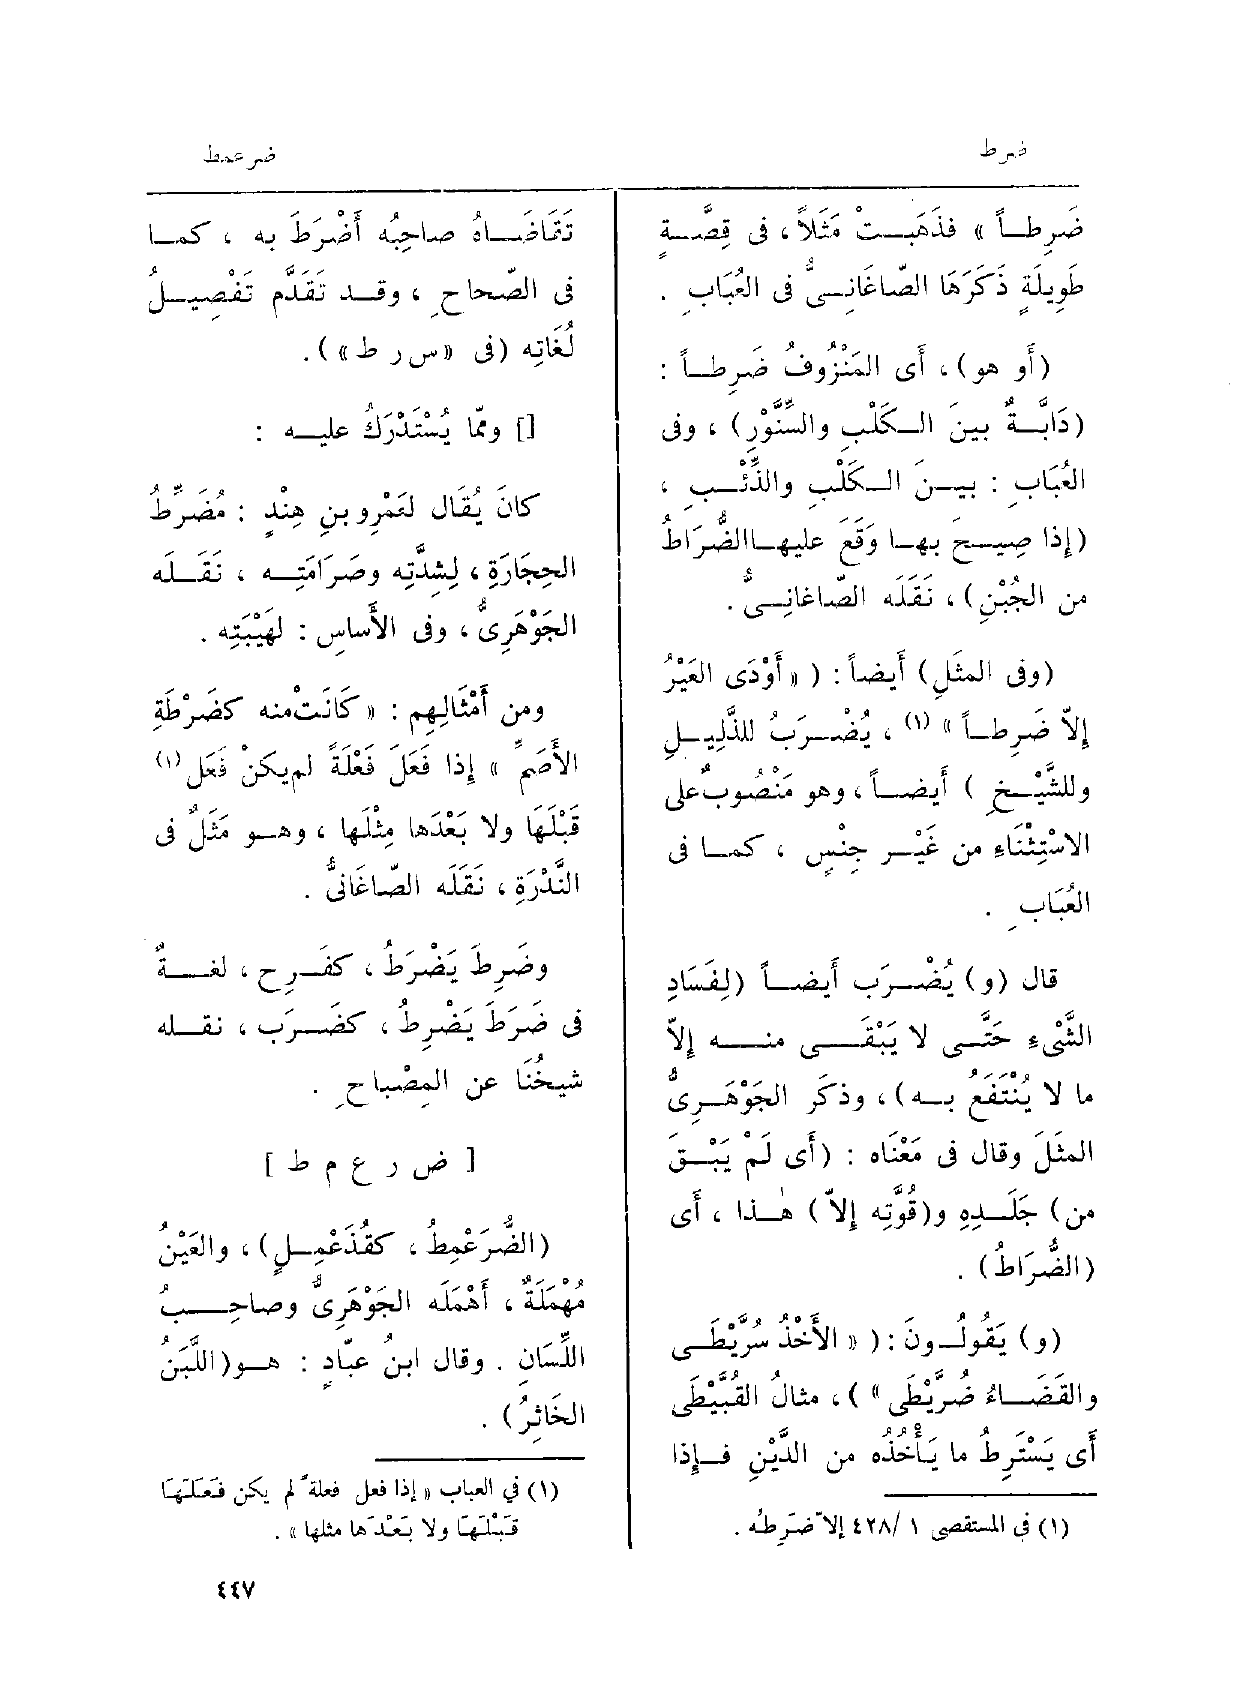 ضرط
ضرعمط
ضَرِطاً » فذَهَبَتْ مَثَلاً ، فى قِصَّةٍ
طَوِيلَةٍ ذَكَرَهَا الصّاغَانِىُّ فى العُبَابِ .
(أَو هو) ، أَى المَنْزُوفُ ضَرِطاً :
(دَابَّةٌ بينَ الكَلْبِ والسِّنَّوْرِ) ، وفى
العُبَابِ : بينَ الكَلْبِ والذِّئْبِ ،
(إِذا صِيحَ بها وَقَعَ عليها الضُّرَاطُ
من الجُبْنِ) ، نَقَلَه الصّاغانِىُّ .
(وفى المثَلِ) أَيضاً : ( « أَوْدَى العَيْرُ
إِلاّ ضَرِطاً » (١) ، يُضْرَبُ للذَّلِيلِ
وللشَّيْخِ ) أَيضاً ، وهو مَنْصُوبٌ على
الاسْتِثْنَاءِ من غَيْرِ جِنْسٍ ، كما فى
العُبَابِ .
قال (و) يُضْرَب أَيضاً (لِفَسَادِ
الشَّىْءِ حَتَّى لا يَبْقَى منه إِلاّ
ما لا يُنْتَفَعُ به) ، وذكَرَ الجَوْهَرِىُّ
المثَلَ وقال فى مَعْنَاه : (أَى لَمْ يَبْقَ
من) جَلَدِهِ و(قُوَّتِه إِلاّ) هٰذا ، أَى
(الضُّرَاطُ) .
(و) يَقُولُونَ : ( « الأَخْذُ سُرَّيْطَى
والقَضَاءُ ضُرَّيْطَى » ) ، مثالُ القُبَّيْطَى
أَى يَسْتَرِطُ ما يَأْخُذُه من الدَّيْنِ فإِذا
(١) فى المستقصى ١ /٤٢٨ إلا ضَرِطُه .
تَقَاضَاهُ صاحِبُه أَضْرَطَ به ، كما
فى الصّحاحِ ، وقد تَقَدَّم تَفْصِيلُ
لُغَاتِه (فى «س ر ط») .
[] وممّا يُسْتَدْرَكُ عليه :
كانَ يُقَال لعَمْرِو بنِ هِنْدٍ : مُضَرِّطُ
الحِجَارَةِ ، لِشِدَّتِه وصَرَامَتِه ، نَقَله
الجَوْهَرِىُّ ، وفى الأَساسِ : لهَيْبَتِه .
ومن أَمْثَالِهِم : « كَانَتْ منه كضَرْطَةِ
الأَصَمِّ » إِذا فَعَلَ فَعْلَةً لم يكنْ فَعَل (١)
قَبْلَهَا ولا بَعْدَها مِثْلَها ، وهو مَثَلٌ فى
النَّدْرَةِ ، نَقَلَه الصّاغَانىُّ .
وضَرِطَ يَضْرَطُ ، كفَرِح ، لغةٌ
فى ضَرَطَ يَضْرِطُ ، كضَرَبَ ، نقله
شيخُنَا عن المِصْباحِ .
[ ض ر ع م ط ]
(الضُّرَعْمِطُ ، كقُذَعْمِلٍ) ، والعَيْنُ
مُهْمَلَةٌ ، أَهْمَلَه الجَوْهَرِىُّ وصاحِبُ
اللِّسَانِ . وقال ابنُ عبّادٍ : هو (اللَّبَنُ
الخَاثِرُ) .
(١) في العباب « إذا فعل فعلة ً لم يكن فَعَلَهَا
قَبْلَهَا ولا بَعْدَها مثلها » .
٤٤٧